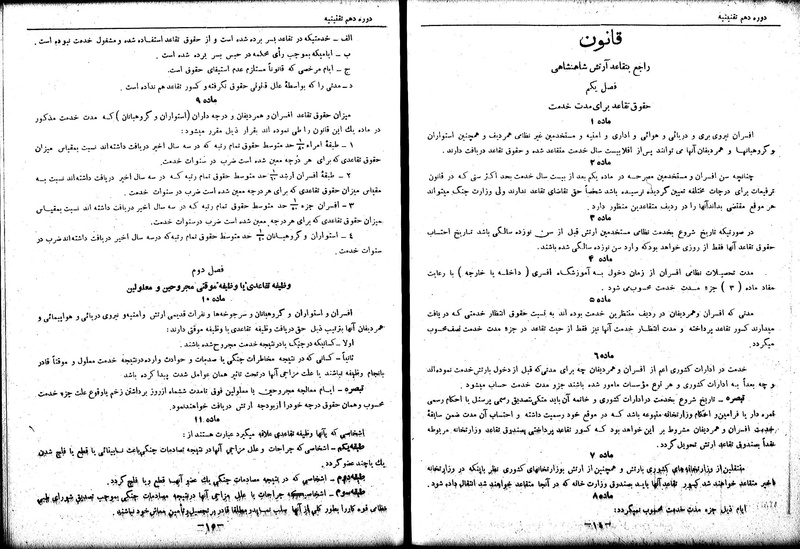 دوره دهم تقنینیه
قانون
راجع بتقاعد آرتش شاهنشاهی
فصل یکم
حقوق تقاعد برای مدت خدمت
ماده ۱
افسران نیروی بری و دریائی و هوائی و اداری و امنیه و مستخدمین غیر نظامی همردیف و همچنین استواران
و گروهبانها و همردیفان آنها می توانند پس از اقلا بیست سال خدمت متقاعد شده و حقوق تقاعد دریافت دارند.
ماده ۲
چنانچه سن افسران و مستخدمین مصرحه در ماده یکم بعد از بیست سال خدمت بحد اکثر سنی که در قانون
ترفیعات برای درجات مختلفه تعیین گردیده نرسیده باشد شخصاً حق تقاضای تقاعد ندارند ولی وزارت جنگ میتواند
هر موقع مقتضی بداند آنها را در ردیف متقاعدین منظور دارد.
ماده ۳
در صورتیکه تاریخ شروع بخدمت نظامی مستخدمین ارتش قبل از سن نوزده سالگی باشد تاریخ احتساب
حقوق تقاعد آنها فقط از روزی خواهد بود که وارد سن نوزده سالگی شده باشند.
ماده ۴
مدت تحصیلات نظامی افسران از زمان دخول به آموزشگاه افسری (داخله یا خارجه) با رعایت
مفاد ماده (۳) جزء مدت خدمت محسوب می شود.
ماده ۵
مدتی که افسران و همردیفان در ردیف منتظرین خدمت بوده اند به نسبت حقوق انتظار خدمتی که دریافت
میدارند کسور تقاعد پرداخته و مدت انتظار خدمت آنها نیز فقط از حیث تقاعد در جزء مدت خدمت نصف محسوب
میگردد.
ماده ۶
خدمت در ادارات کشوری اعم از افسران و همردیفان چه برای مدتی که قبل از دخول بارتش خدمت نموده اند
و چه بعداً به ادارات کشوری و هر نوع مؤسسات مامور شده باشند جزو مدت خدمت حساب میشود.
تبصره - تاریخ شروع بخدمت در ادارات کشوری و خاتمه آن باید متکی بتصدیق رسمی پرسنل یا احکام رسمی
نمره دار یا فرامین و احکام وزارتخانه متبوعه باشد که در موقع خود رسمیت داشته و احتساب آن مدت ضمن سابقه
خدمت افسران و همردیفان مشروط بر این خواهد بود که کسور تقاعد پرداختی بصندوق تقاعد وزارتخانه مربوطه
بصندوق تقاعد ارتش تحویل گردد.
ماده ۷
منتقلین از وزارتخانه های کشوری بارتش و همچنین از ارتش بوزارتخانهای کشوری نظر باینکه در وزارتخانه
اخیر متقاعد خواهند شد کسور تقاعد آنها باید بصندوق وزارت خانه که در آنجا متقاعد خواهند شد انتقال داده شود.
ماده ۸
ایام ذیل جزء مدت خدمت محسوب نمیگردد:
-۱۴-
دوره دهم تقنینیه
الف - خدمتیکه در تقاعد بسر برده شده است و از حقوق تقاعد استفاده شده و مشغول خدمت نبوده است.
ب - ایامیکه بموجب رأی محکمه در حبس بسر برده شده است.
ج - ایام مرخصی که قانوناً مستلزم عدم استیفای حقوق است.
د - مدتی را که بواسطه علل قانونی حقوق نگرفته و کسور تقاعد هم نداده است.
ماده ۹
میزان حقوق تقاعد افسران و همردیفان و درجه داران (استواران و گروهبانان) که مدت خدمت مذکور
در ماده یک این قانون را طی نموده اند بقرار ذیل مقرر میشود:
۱ - طبقه امراء حد متوسط حقوق تمام رتبه که در سه سال اخیر دریافت داشته اند نسبت بمقیاس میزان
حقوق تقاعدی که برای هر درجه معین شده است ضرب در سنوات خدمت.
۲ - طبقه افسران ارشد حد متوسط حقوق تمام رتبه که در سه سال اخیر دریافت داشته اند نسبت به
مقیاس میزان حقوق تقاعدی که برای هر درجه معین شده است ضرب در سنوات خدمت.
۳ - افسران جزء حد متوسط حقوق تمام رتبه که در سه سال اخیر دریافت داشته اند نسبت بمقیاس
میزان حقوق تقاعدی که برای هر درجه معین شده است ضرب در سنوات خدمت.
٤ - استواران و گروهبانان حد متوسط حقوق تمام رتبه که در سه سال اخیر دریافت داشته اند ضرب در
سنوات خدمت.
فصل دوم
وظیفه تقاعدی یا وظیفه موقتی مجروحین و معلولین
ماده ۱۰
افسران و استواران و گروهبانان و سرجوخه ها و نفرات قدیمی ارتش و امنیه و نیروی دریائی و هواپیمائی و
همردیفان آنها بترتیب ذیل حق دریافت وظیفه تقاعدی یا وظیفه موقتی دارند:
اولا - کسانیکه در جنگ یا در نتیجه خدمت مجروح شده باشند.
ثانیاً - کسانی که در نتیجه مخاطرات جنگی یا صدمات و حوادث وارده در نتیجه خدمت معلول و موقتاً قادر
بانجام وظیفه نباشند یا علت مزاجی آنها در تحت تاثیر همان عوامل شدت پیدا کرده باشد
تبصره - ایام معالجه مجروحین یا معلولین فوق تا مدت ششماه از روز برداشتن زخم یا وقوع علت جزء خدمت
محسوب و همان حقوق درجه خود را از بودجه ارتش دریافت خواهند نمود.
ماده ۱۱
اشخاصی که بآنها وظیفه تقاعدی علاقه میگیرد عبارت هستند از:
طبقه یکم - اشخاصی که جراحات و علل مزاجی آنها در نتیجه تصادمات جنگی باعث نابینائی یا قطع یا فلج شدن
یک یا چند عضو گردد.
طبقه دوم - اشخاصی که در نتیجه تصادمات جنگی یک عضو آنها قطع و یا فلج گردد.
طبقه سوم - اشخاصی که جراحات یا علل مزاجی آنها در نتیجه مصادمات جنگی بموجب تصدیق شورای طبی
نظامی قوه کار را بطور کلی از آنها سلب نماید و مطلقا قادر بر تحصیل و تأمین معاش خود نباشند.
-۱۵-